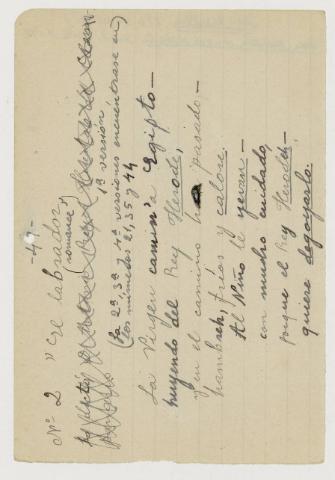 - 49 -
Nº 2 "El labrador"
(romance)
1ª versión
(La 2ª, 3ª y 4ª versiones encuéntrase en
los números 21, 35 y 44
La Virgen camin'a Egipto—
huyendo del Rey Herode,
y en el camino han pasado—
hambres, fríos y calore.
Al Niño le yevan—
con mucho cuidado,
porque el Rey Herodes—
quiere degoyarlo.